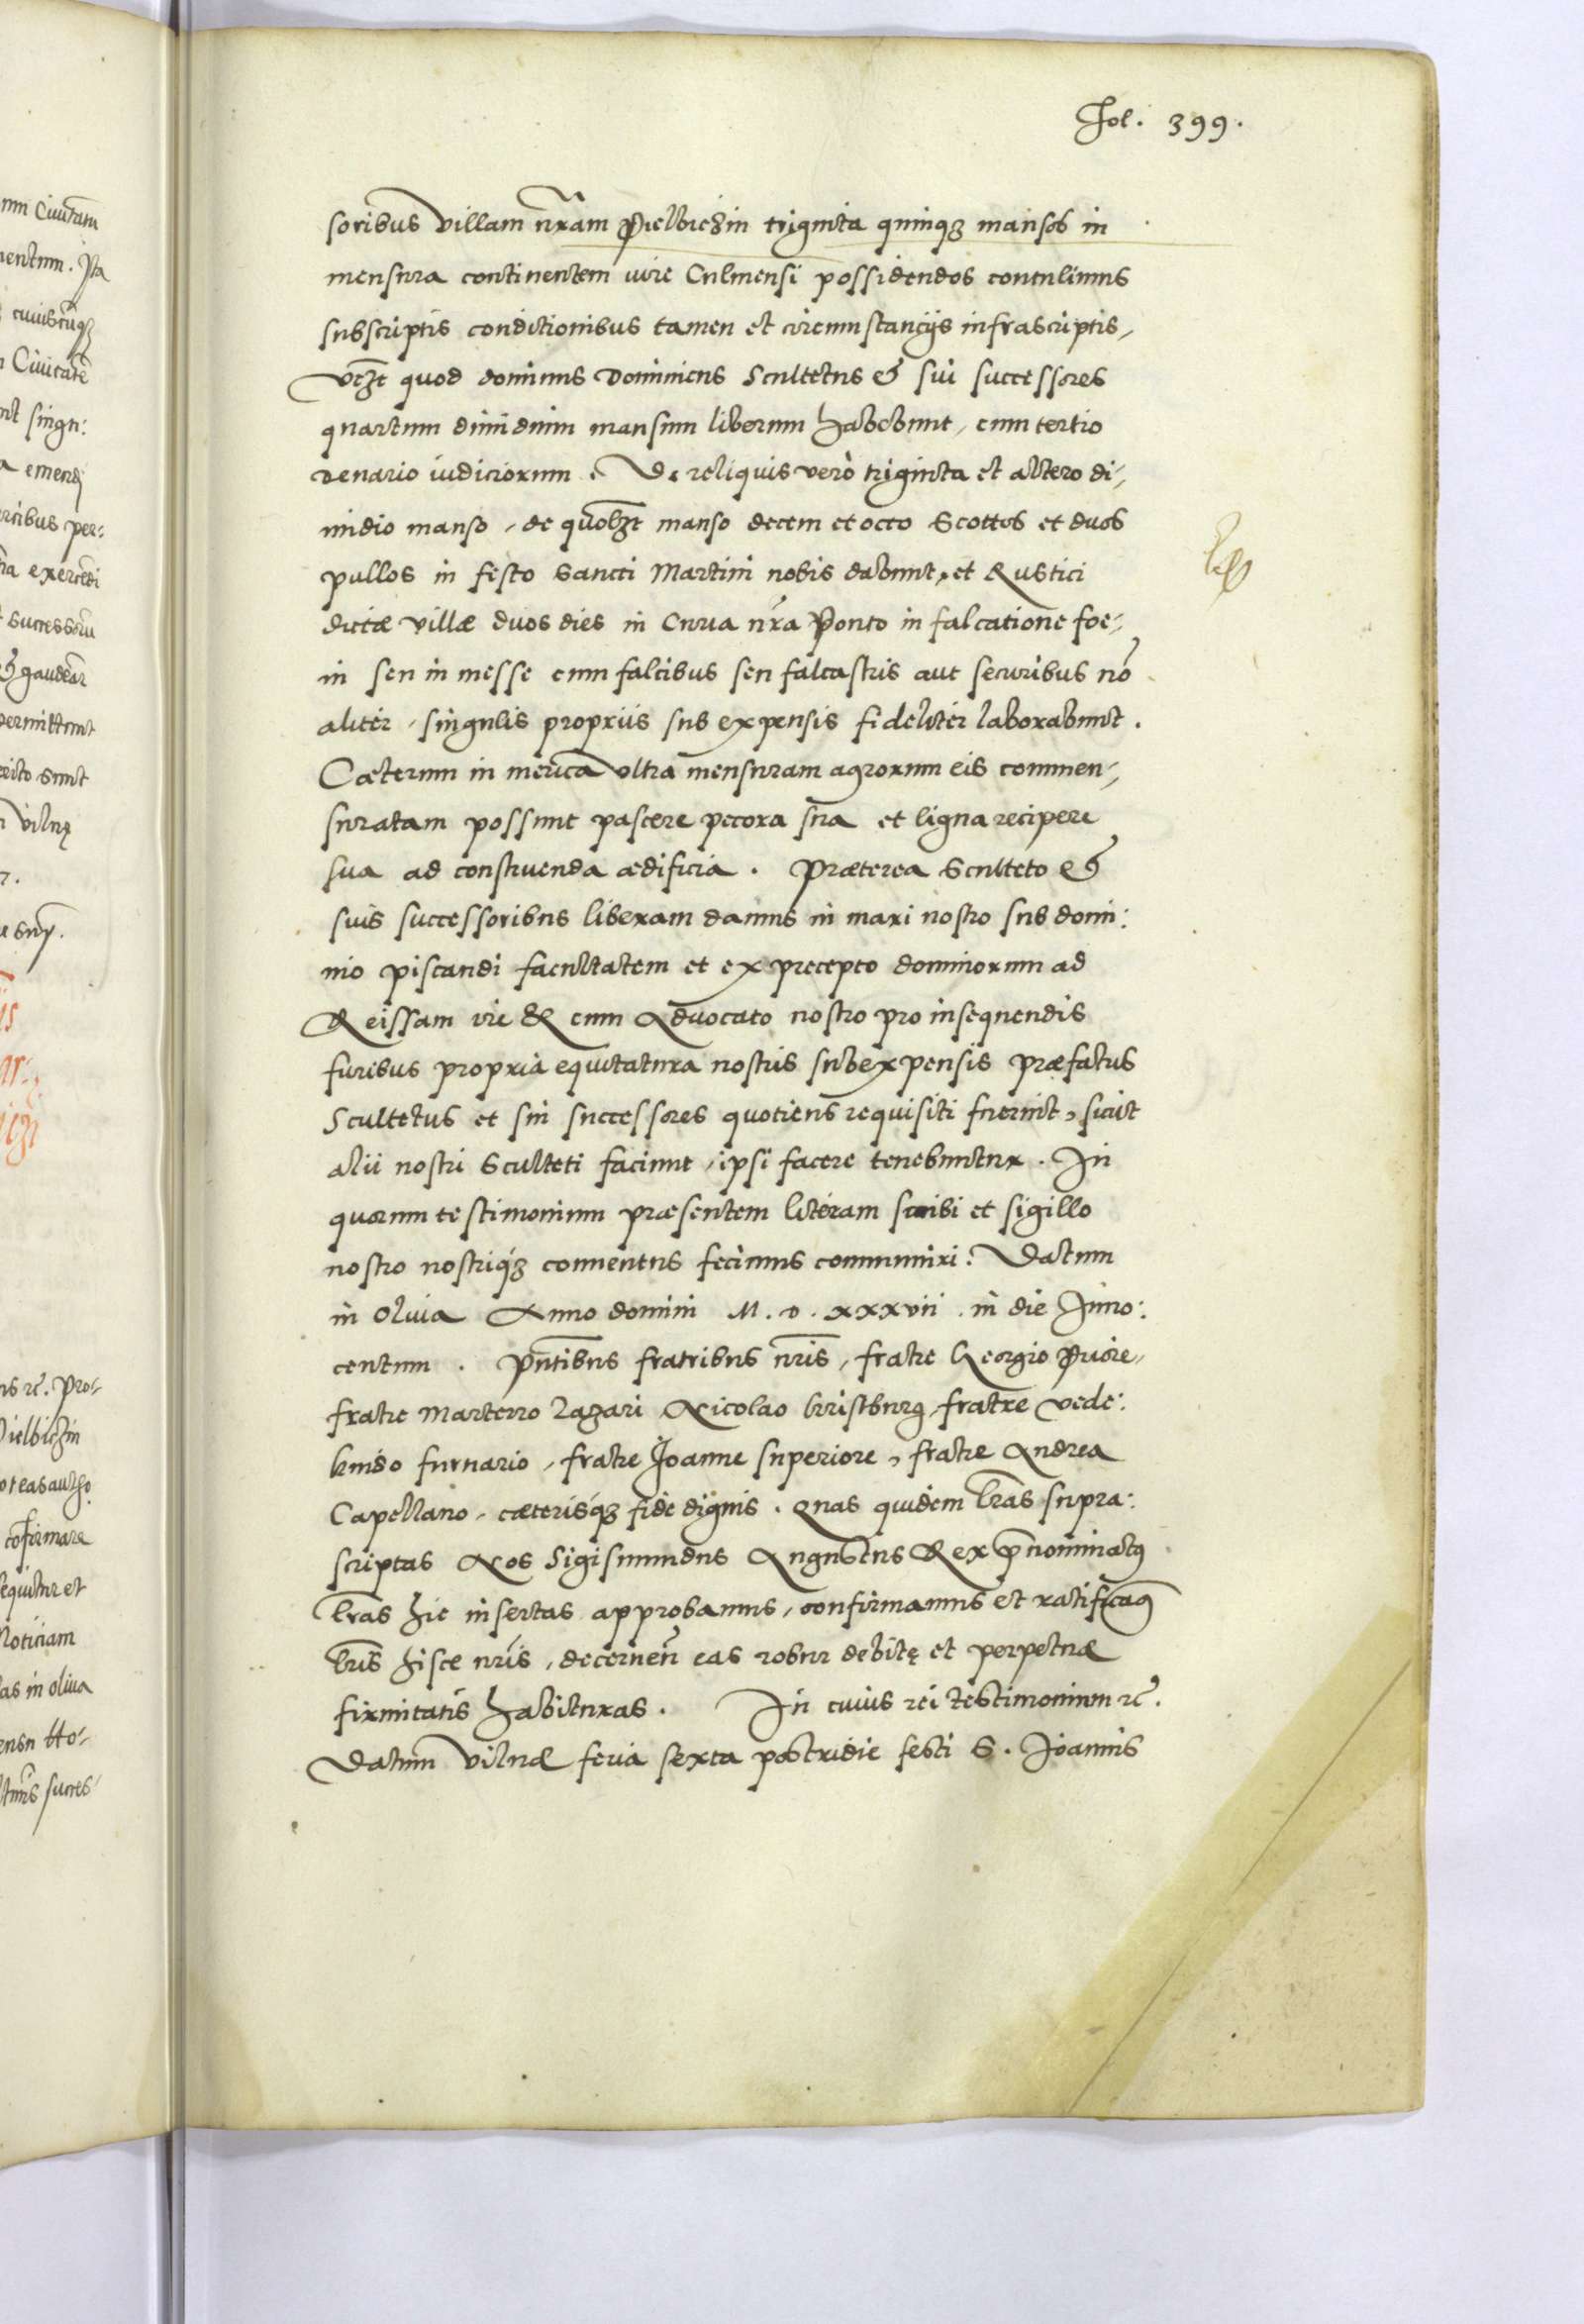 Fol. 399.
soribus Villam nr̃am Pielbiczin triginta quinqꝫ mansos in
mensura continentem iure Culmensi possidendos contulimus
subscriptis conditionibus tamen et circumstancijs infrascriptis,
vczt quod dominus Dominicus Scultetus & sui successores
quartum dimidium mansum liberum habebunt, cum tertio
denario iudiciorum. De reliquis vero triginta et altero di-
midio manso, de quolꝫt manso decem et octo Scottos et duos
pullos in festo Sancti Martini nobis dabunt, et Rustici
dictæ villæ duos dies in Curia nr̃a Ponto in falcatione foe-
in seu in messe cum falcibus seu falcastris aut securibus nõ
aliter, singulis propriis sub expensis fideliter laborabunt.
Cæterum in merica vltra mensuram agrorum eis commen-
suratam possunt pascere pecora sua et ligna recipere
sua ad construenda ædificia. Præterea Sculteto &
suis successoribus liberam damus in mari nostro sub domi:
nio piscandi facultatem et ex precepto dominorum ad
Reissam vie & cum Advocato nostro pro insequendis
furibus propria equitatura nostris sub expensis præfatus
Scultetus et sui successores quotiens requisiti fuerint, sicut
alii nostri Sculteti faciunt, ipsi facere tenebuntur. In
quorum testimonium præsentem literam scribi et sigillo
nostro nostriqꝫ conuentus fecimus communiri. Datum
in Oliuia Anno domini M. D. xxxvii. in die Inno:
centum. Pñtibus fratribus nr̃is, fratre Georgio Priore,
fratre Marterro Zagari Nicolao Bristburg, fratre vede:
kindo furnario, fratre Joanne superiore, fratre Andrea
Capellano, cæterisqꝫ fide dignis. Quas quidem lr̃as supra:
scriptas Nos Sigismundus Augustus Rex p̃nominatus
lr̃as hic insertas approbamus, confirmamus et ratificamus
lr̃is hisce nr̃is, decerneñ eas robur debitę et perpetuæ
firmitatis habituras. In cuius rei testimonium rč.
Datum Vilnæ feria sexta postridie festi S. Joannis